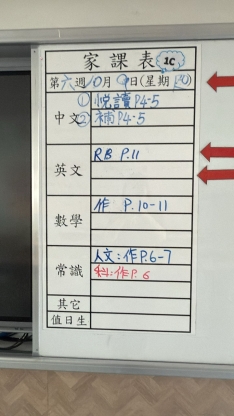 家課表 1C
第六週 10月9日(星期四)
中文 ① 悅讀P.4-5
② 補P.4-5
英文 RB P.11
數學 作 P.10-11
常識 人文:作P.6-7
科:作P.6
其它
值日生